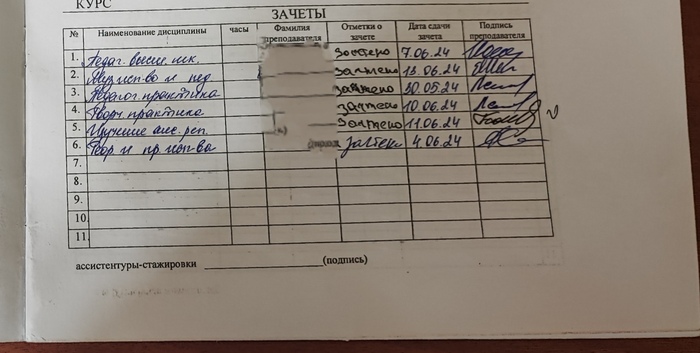 КУРС
ЗАЧЕТЫ
№ Наименование дисциплины часы Фамилия преподавателя Отметки о зачете Дата сдачи зачета Подпись преподавателя
1. Педаг. высш. шк. зачтено 7.06.24
2. Муз. исп-во и пед. зачтено 13.06.24
3. Педагог. практика зачтено 30.05.24
4. Творч. практика зачтено 10.06.24
5. Изучение анс. реп. зачтено 11.06.24
6. Теор и пр исп-ва зачтено 4.06.24
7.
8.
9.
10.
11.
ассистентуры-стажировки (подпись)